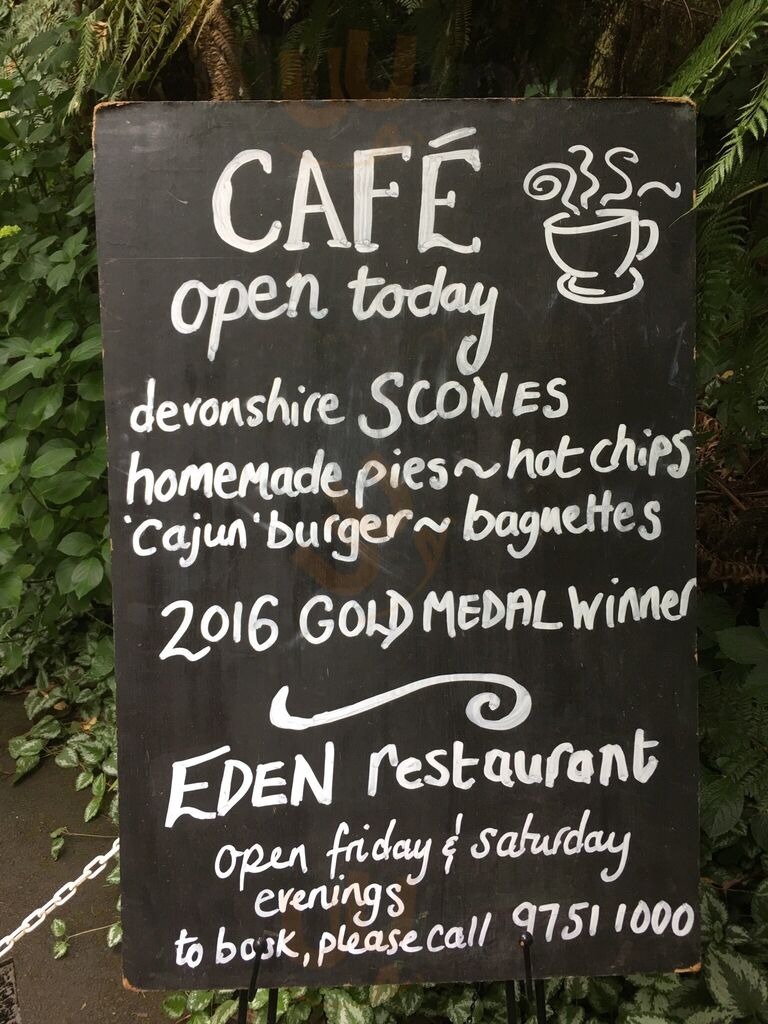 CAFÉ
open today
devonshire SCONES
homemade pies ~ hot chips
'cajun' burger ~ baguettes
2016 GOLD MEDAL winner
EDEN restaurant
open friday & saturday
evenings
to book, please call 9751 1000